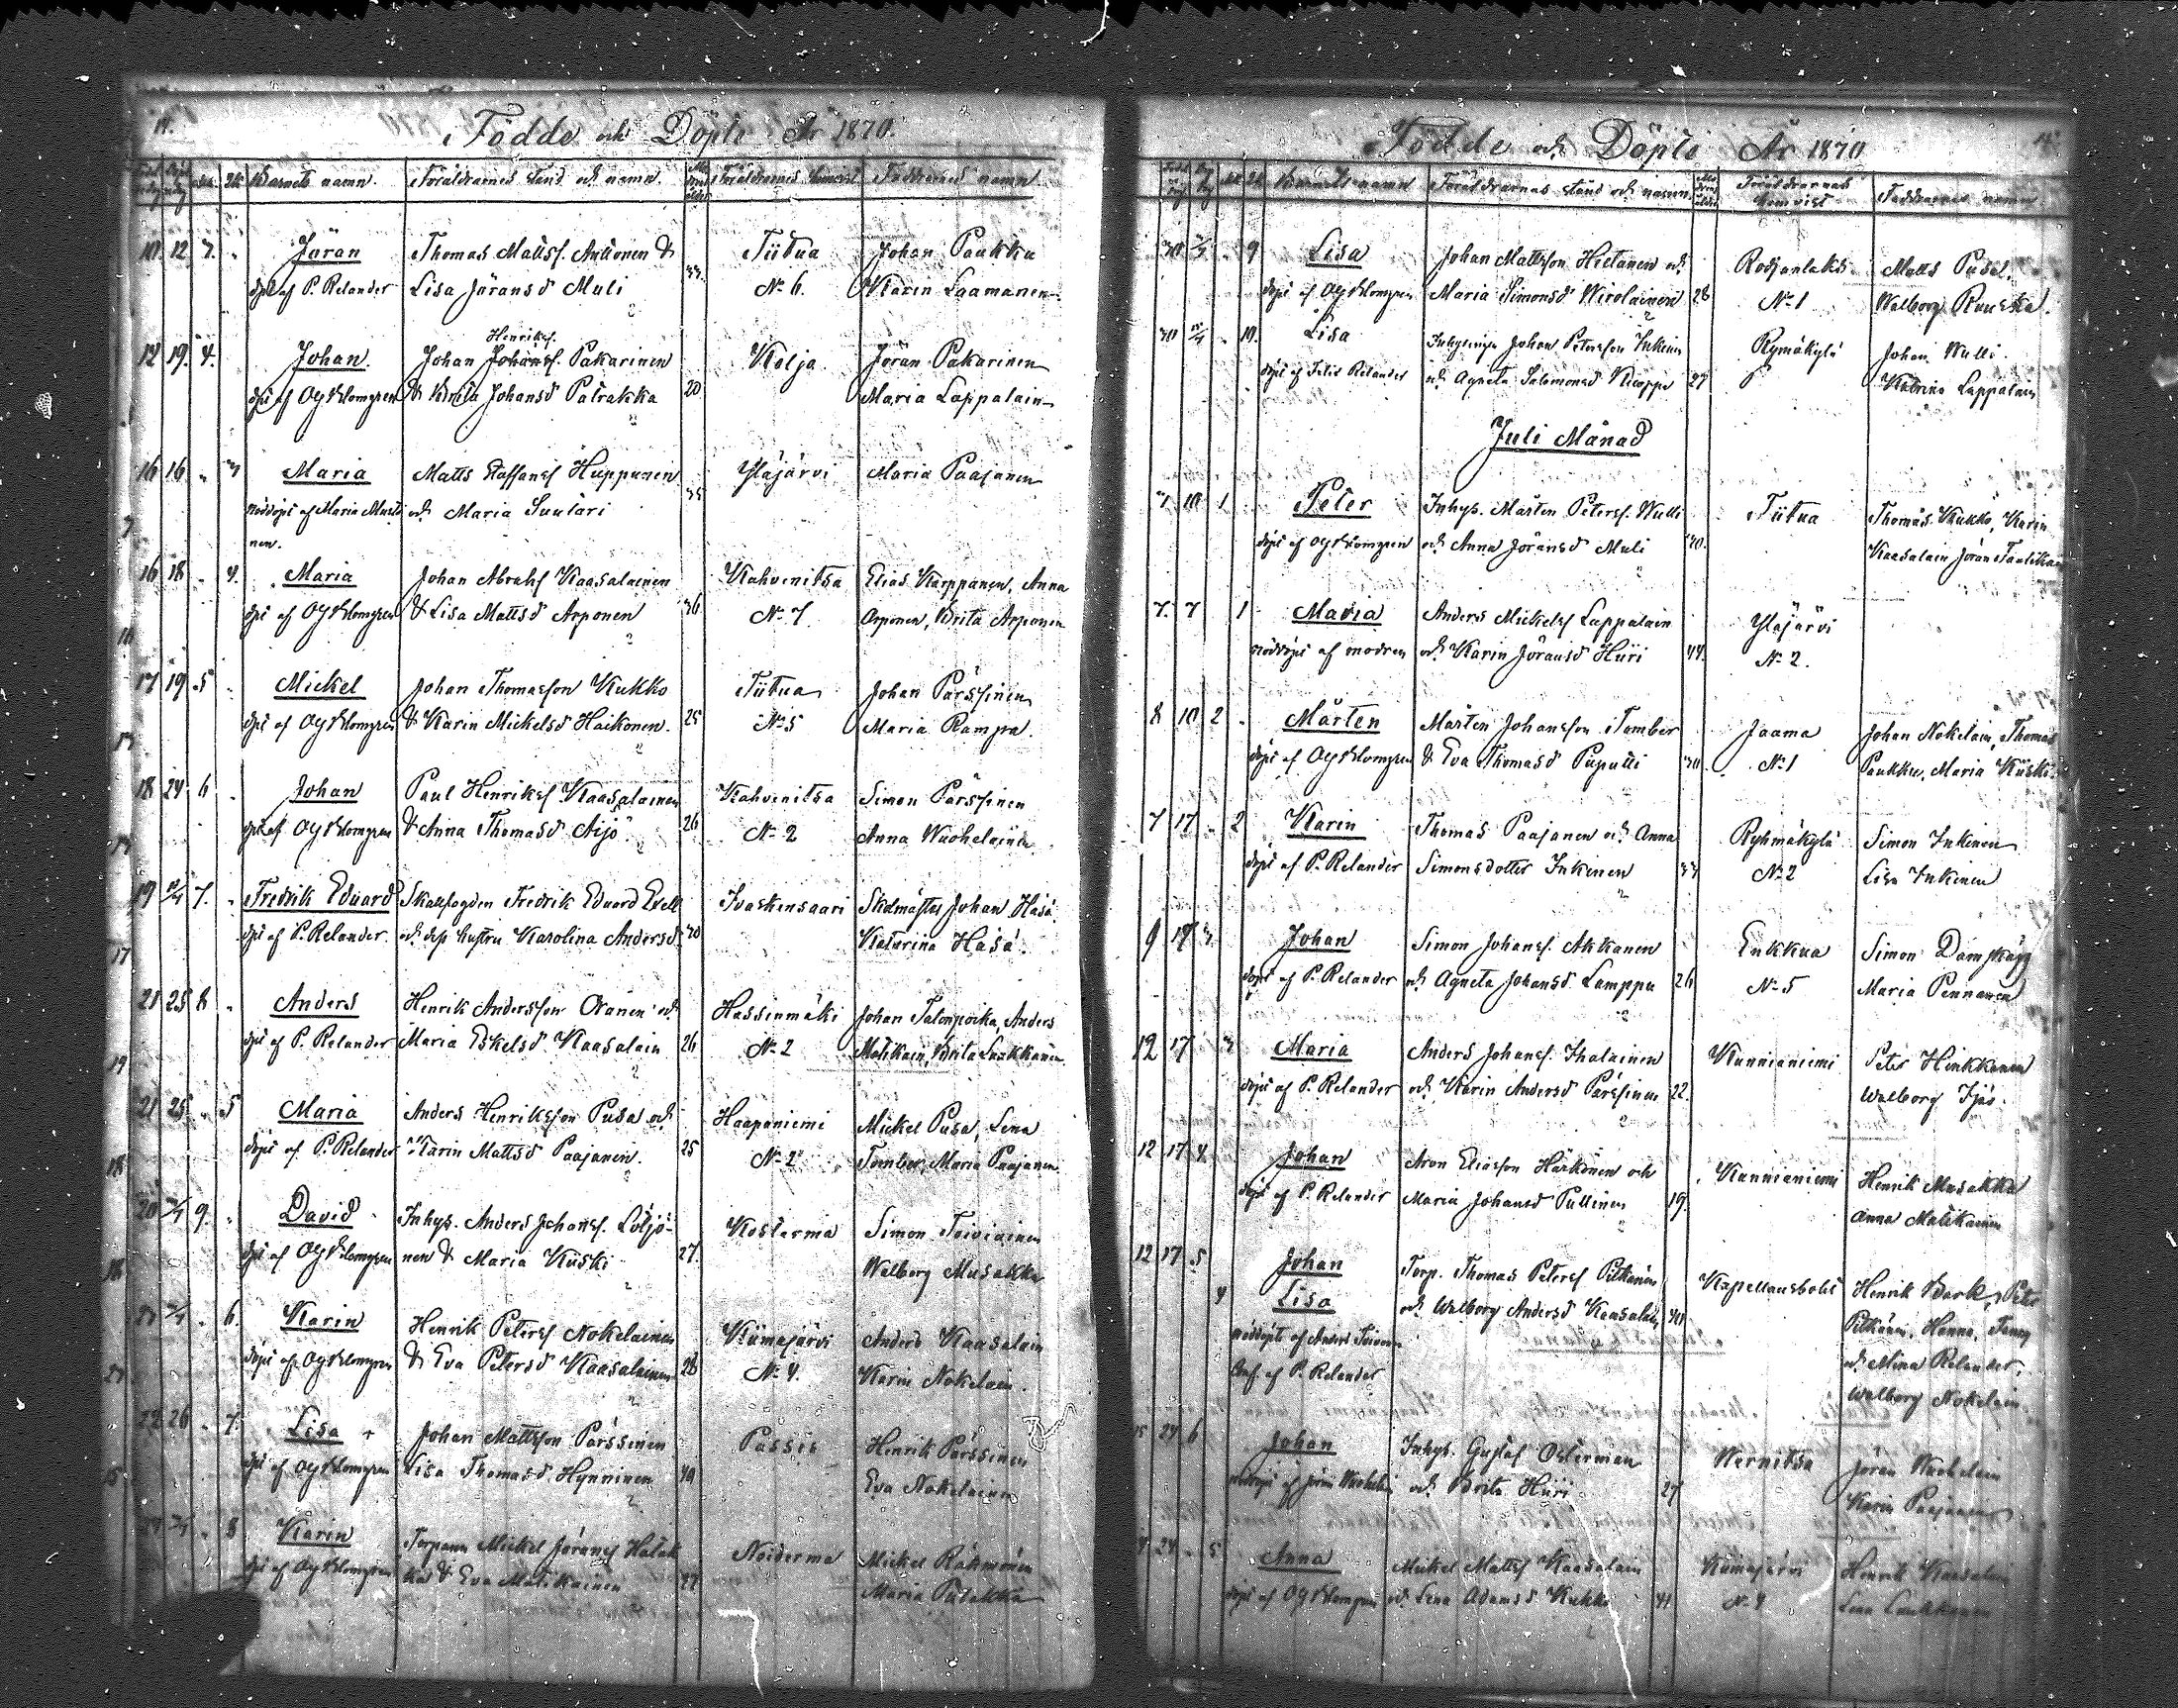 Födde och Döpte År 1870.
Barnets namn. Föräldrarnes stånd och namn. Föräldrarnes hemvist Faddrarnes namn
10 12 7. Jöran Thomas Mattsf. Anttonen & 33 Tiitua Johan Paakka
döpt af P. Relander Lisa Jöransd Muli No 6. Karin Laamanen
Henriksf.
12 19. 4. Johan. Johan Johansf. Pakarinen Kolja Jöran Pakarinen
döpt af OgBlomgren & Brita Johansd Patrakka 20 Maria Lappalain
16 16 Maria Matts Staffansf Huppunen 35 Yläjärvi Maria Paajanen
nöddöpt af Maria och Maria Suutari
nen.
16 18 4. Maria Johan Abrahf Kaasalainen Kahvenitsa Elias Karppanen, Anna
döpt af OgBlomgren & Lisa Mattsd Arponen 36 No 7 Arponen, Brita Arponen
17 19 5 Mickel Johan Thomasson Kukko Tiitua Johan Pärssinen
döpt af OgBlomgren & Karin Mickelsd Haikonen. 25 No 5 Maria Rampa.
18 24 6 Johan Paul Henriksf Kaasalainen Kahvenitsa Simon Pärssinen
döpt af OgBlomgren & Anna Thomasd Äijö 26 No 2 Anna Wuohelainen
19 7. Fredrik Eduard Skallfogden Fredrik Eduard Ivaskensaari Johan Häsä
döpt af P. Relander. och dess hustru Karolina Andersd 30 Katarina Häsä
21 25 8 Anders Henrik Andersson Oranen och Hassinmäki Johan Talonpoika, Anders
döpt af P. Relander Maria Eskelsd Kaasalain 26 No 2 Matikain, Brita Laukkanen
21 25 5 Maria Anders Henriksson Pusa och Haapaniemi Mickel Pusa, Lena
döpt af P. Relander Karin Mattsd Paajanen. 25 No 2 Tomber, Maria Paajanen
20 9. David Inhys. Anders Johansf. Löljö- Kosterma Simon Toiviainen
döpt af OgBlomgren nen & Maria Kiiski 27. Walborg Musakka
6. Karin Henrik Petersf Nokelainen Kiimajärvi Anders Kaasalain
döpt af OgBlomgren & Eva Petersd Kaasalainen 28 No 4. Karin Nokelain.
22 26 7. Lisa Johan Mattsson Pärssinen Passis Henrik Pärssinen
döpt af OgBlomgren Lisa Thomasd. Hynninen 40 Eva Nokelainen
8 Karin Mickel Jöransf Noiderma Mickel Rähmönen
döpt af OgBlomgren & Eva Matikainen 22 Maria Putakka
Födde och Döpte År 1870
Barnets namn Föräldrarnas stånd och namn. Föräldrarnas Faddrarnes namn
hemvist
30 9 Lisa Johan Mattsson Hietanen och Rodjanlaks Matts Pusa
döpt af OgBlomgren Maria Simonsd Wirolainen 28 No 1 Walborg Rauska.
30 10. Lisa Johan Petersson Inkinen Rymäkylä Johan Wulli
döpt af Relander och Agneta Salomonsd Kloppo 27 Katrina Lappalain
Juli Månad
7 10 1 Peter Inhys. Mårten Petersf. Wulli Tiitua Thomas Kukko, Karin
döpt af OgBlomgren och Anna Jöransd Muli 40. Kaasalain Jöran
7. 7 1 Maria Anders Mickelsf Lappalain Yläjärvi
nöddöpt af modren och Karin Jöransd Hiiri 44. No 2.
8 10 2 Mårten Mårten Johansson Tomber Jaama Johan Nokelain, Thomas
döpt af OgBlomgren & Eva Thomasd Puputti 30. No 1 Paukku, Maria Kiiski
7 17 2 Karin Thomas Paajanen och Anna Ryhmäkylä Simon Inkinen
döpt af P. Relander Simonsdotter Inkinen 33 No 2 Lisa Inkinen
9 17 3 Johan Simon Johansf. Akkanen Enkkua Simon
döpt af P. Relander och Agneta Johansd Lamppu 26 No 5 Maria Pennanen
12 17 3 Maria Anders Johansf. Ihalainen Kannianiemi Peter Hinkkanen
döpt af P. Relander och Karin Andersd Pärssinen 22. Walborg
12 17 4. Johan Aron Eliasson Härkönen och Kannianiemi Henrik Musakka
döpt af P. Relander Maria Johansd Pullinen 19. Anna Matikainen
12 17 5 Johan Torp. Thomas Petersf Pitkänen Kapellansbolet Henrik Bark, Peter
4 Lisa och Walborg Andersd Kaasalain 40 Pitkänen, Hanna, Fanny
nöddöpte af Anders Toivonen och Mina Relander,
Conf. af P. Relander Walborg Nokelain
15 24 6 Johan Inhys. Gustaf Österman Wernitsa Jöran Wuohelain
nöddöpt af Jöran Wuohelain och Brita Hiiri 27 Karin Paajanen
24 5 Anna Mickel Mattsf Kaasalain Kiimajärvi Henrik Kaasalain
döpt af OgBlomgren och Lena Adamsd Kukko 41 No 4 Lena Laukkanen